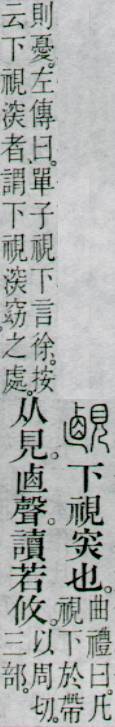 下視突也。
曲禮曰。凡
視下於帶
則憂。左傳曰。單子視下言徐。按
云下視㴱者、謂下視㴱窈之處。
从見。卥聲。讀若攸。
以周切。
三部。